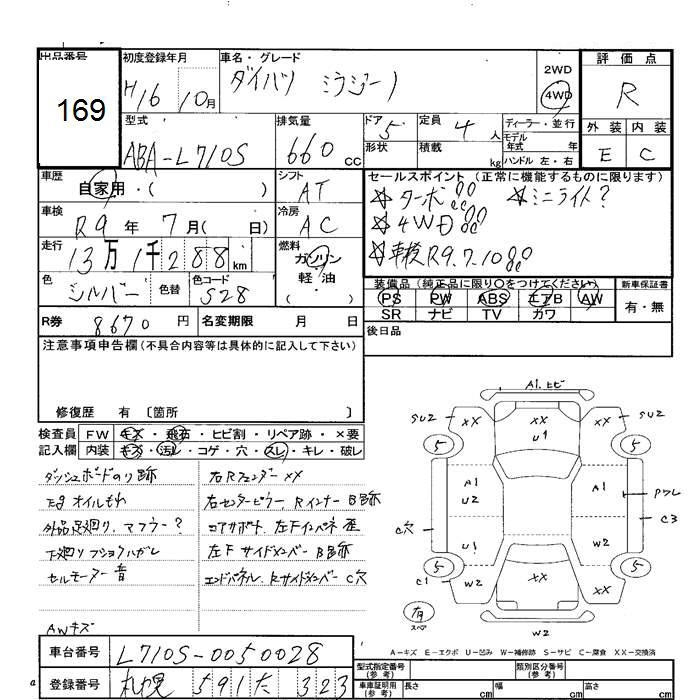 出品番号 初度登録年月 車名・グレード 評価点
169
H16 10月
ダイハツ ミラジーノ
2WD
4WD
R
型式 排気量 ドア 定員 ディーラー・並行 外装 内装
ABA-L710S 660 cc 5 4 人
モデル 年式 年
形状 積載 kg ハンドル 左・右
E C
車歴 シフト セールスポイント (正常に機能するものに限ります)
自家用・( ) AT
☆ターボ ☆ミニライト?
車検 冷房
R9 年 7 月( 日) AC
☆4WD
走行 燃料
13万1千288km ガソリン 軽油
☆車検R9.7.10
色 色替 色コード
シルバー S28
装備品 (純正品に限り○をつけてください) 新車保証書
PS PW ABS エアB AW 有・無
SR ナビ TV カワ
R券 8670 円 名変期限 月 日
後日品
注意事項申告欄(不具合内容等は具体的に記入して下さい)
修復歴 有 〔箇所 〕
検査員 FW キズ・飛石・ヒビ割・リペア跡・×要
記入欄 内装 キズ・汚レ・コゲ・穴・スレ・キレ・破レ
ダッシュボードのり跡 右Rフェンダー××
オイルもれ 右センターピラー、Rインナー B跡
外品足廻り、マフラー? コアサポート、左Fインパネ 歪
下廻りフショクハガレ 左F サイドメンバー B跡
セルモーター音 エンドパネル、Rサイドメンバー C穴
AWキズ
A1.ヒビ
SU2 ×× ×× ×× SU2
U1
5 5
A1 U2 A1 Pアレ
C穴 C3
U1 W2
5 5
C1 W2 ×× ××
有 スペア
W2
A-キズ E-エクボ U-凹み W-補修跡 S-サビ C-腐食 XX-交換済
車台番号 L710S-0050028
型式指定番号 (参考) 類別区分番号 (参考)
登録番号 札幌 591 た 323
車庫証明用 (参考) 長さ cm 幅 cm 高さ cm